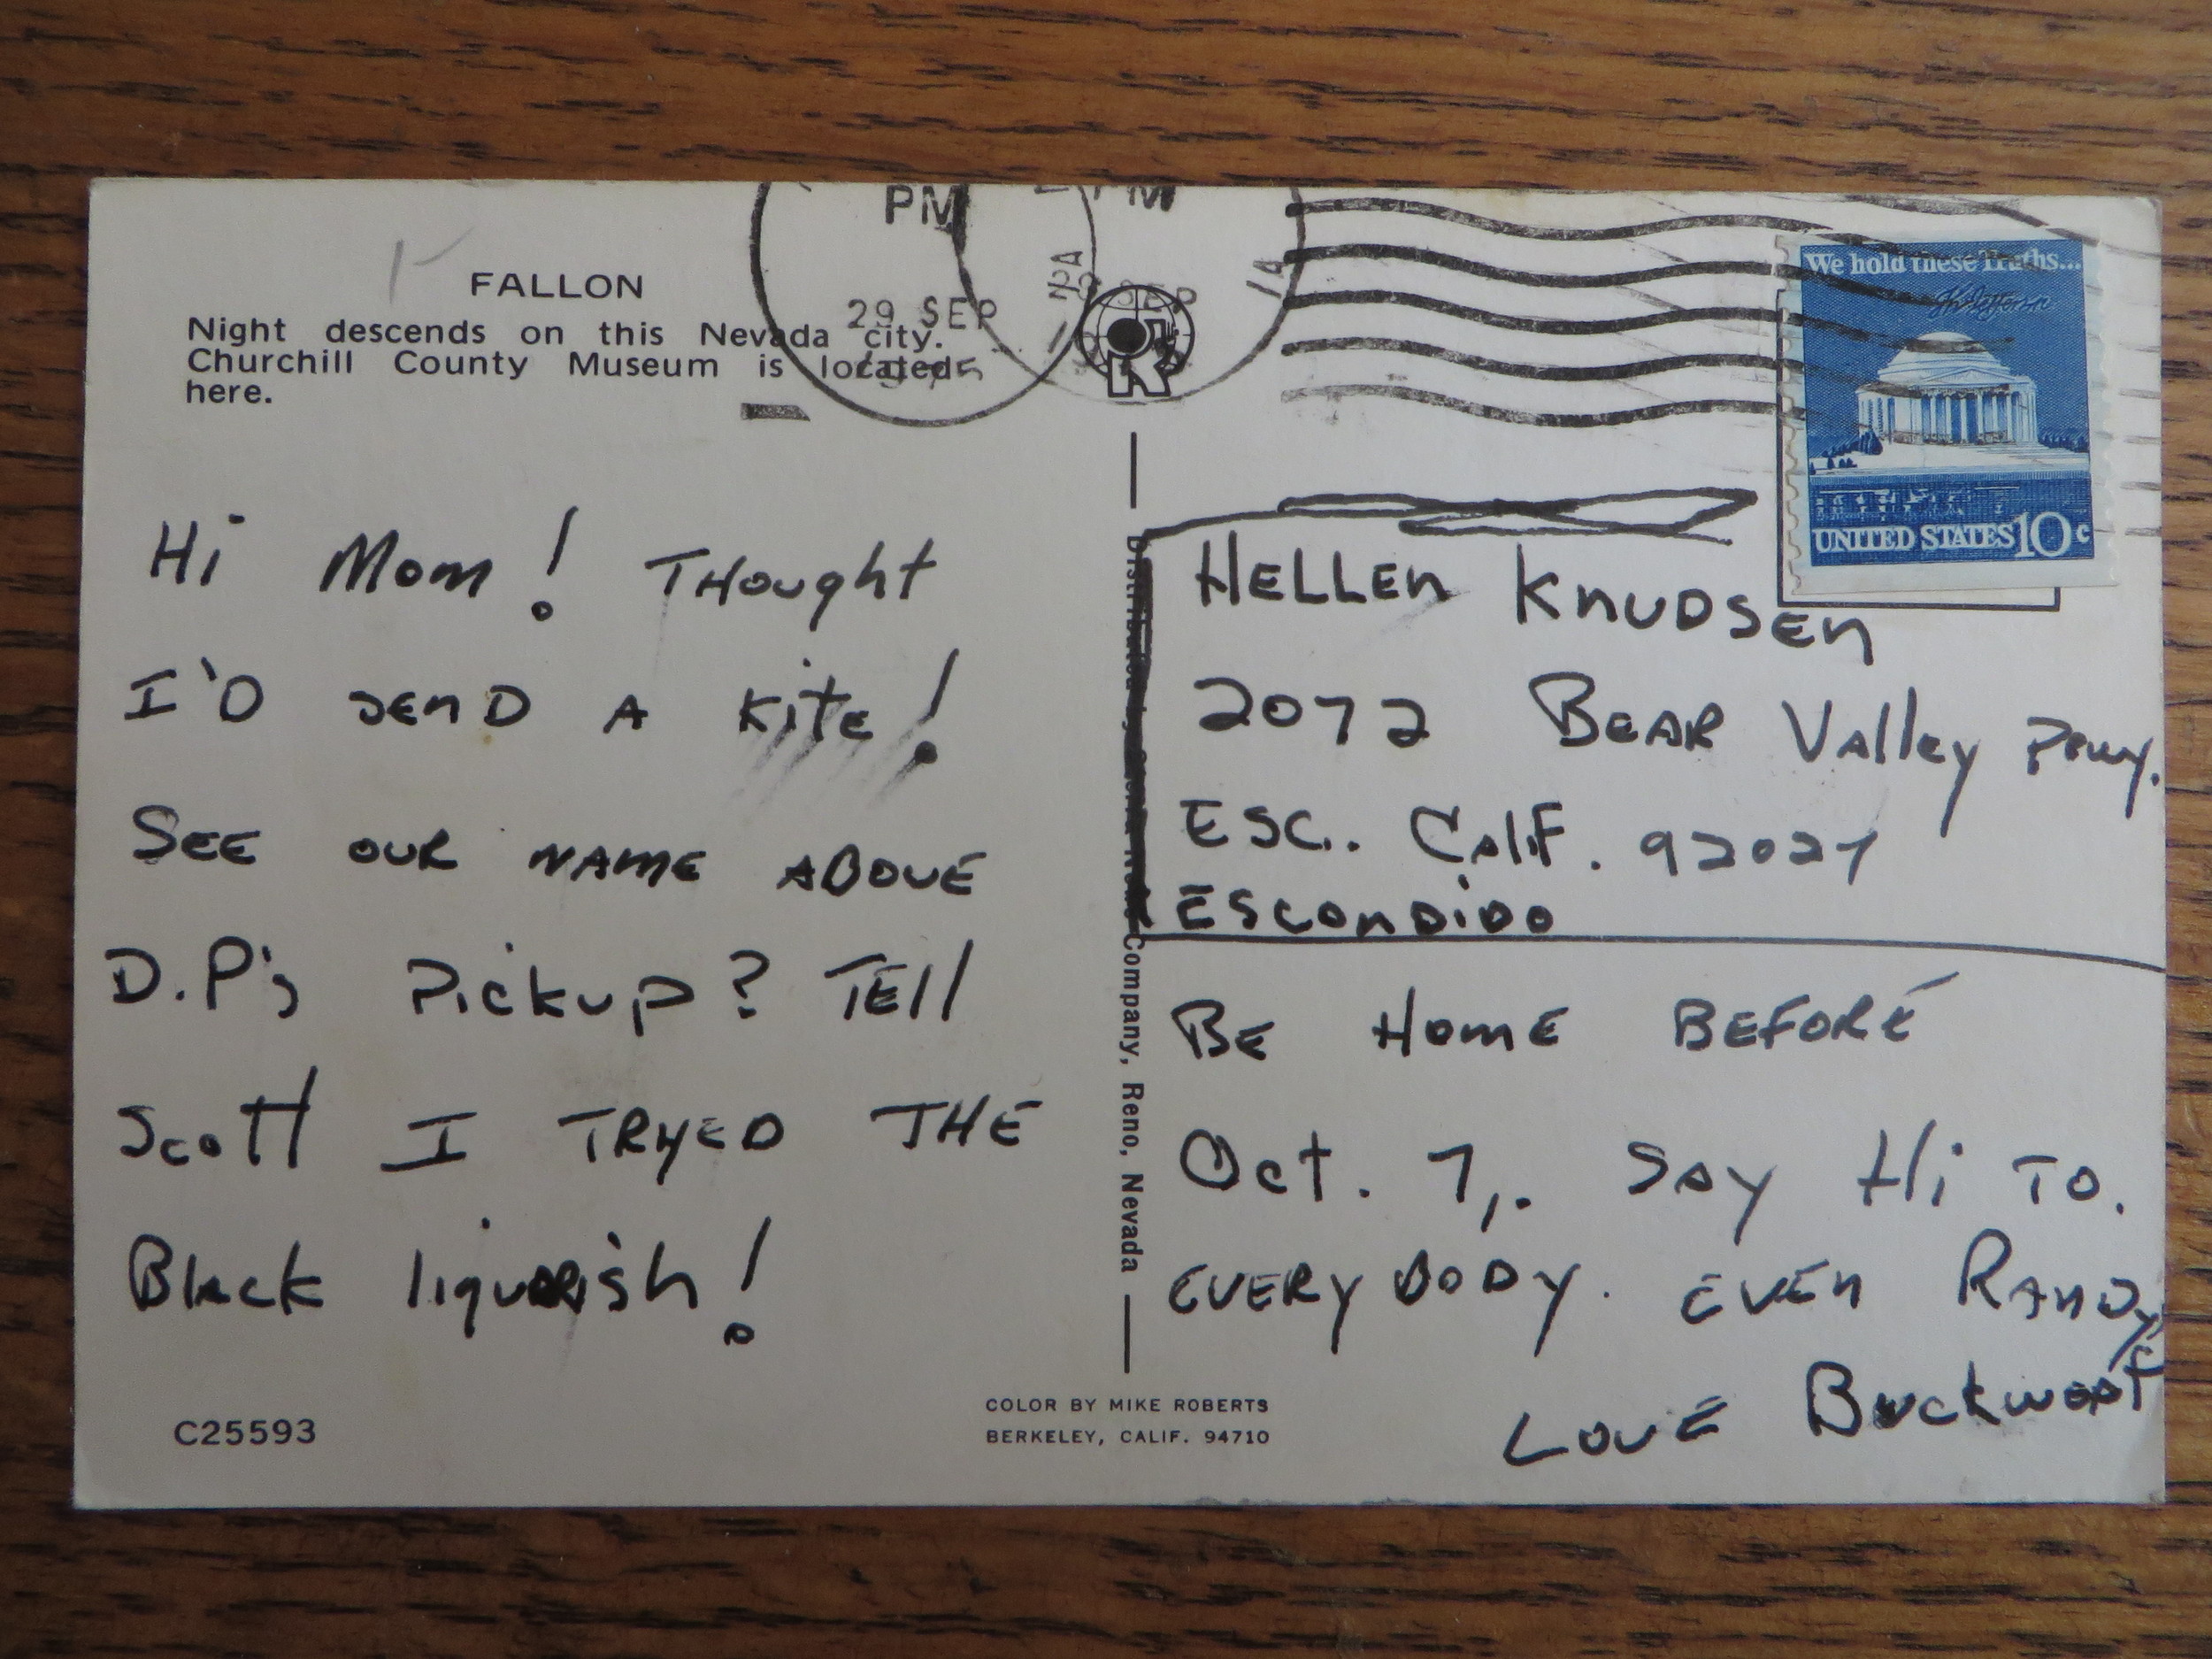 FALLON
Night descends on this Nevada city.
Churchill County Museum is located
here.
PM
29 SEP
1975
PM
SEP
We hold these Truths...
Th Jefferson
UNITED STATES 10c
Hi Mom! THought
I'D senD A Kite!
SEE OUR NAME ABOVE
D.P's Pickup? TEll
Scott I TRYED THE
Black liquorish!
HELLEn KnUDSEn
2072 BEAR Valley Pkwy.
ESC. Calif. 92027
ESConDiDO
BE HomE BEFORE
Oct. 7,. Say Hi To.
EVERYBODY. EVEn RAnDy
LOVE Buckwort
Company, Reno, Nevada
C25593
COLOR BY MIKE ROBERTS
BERKELEY, CALIF. 94710